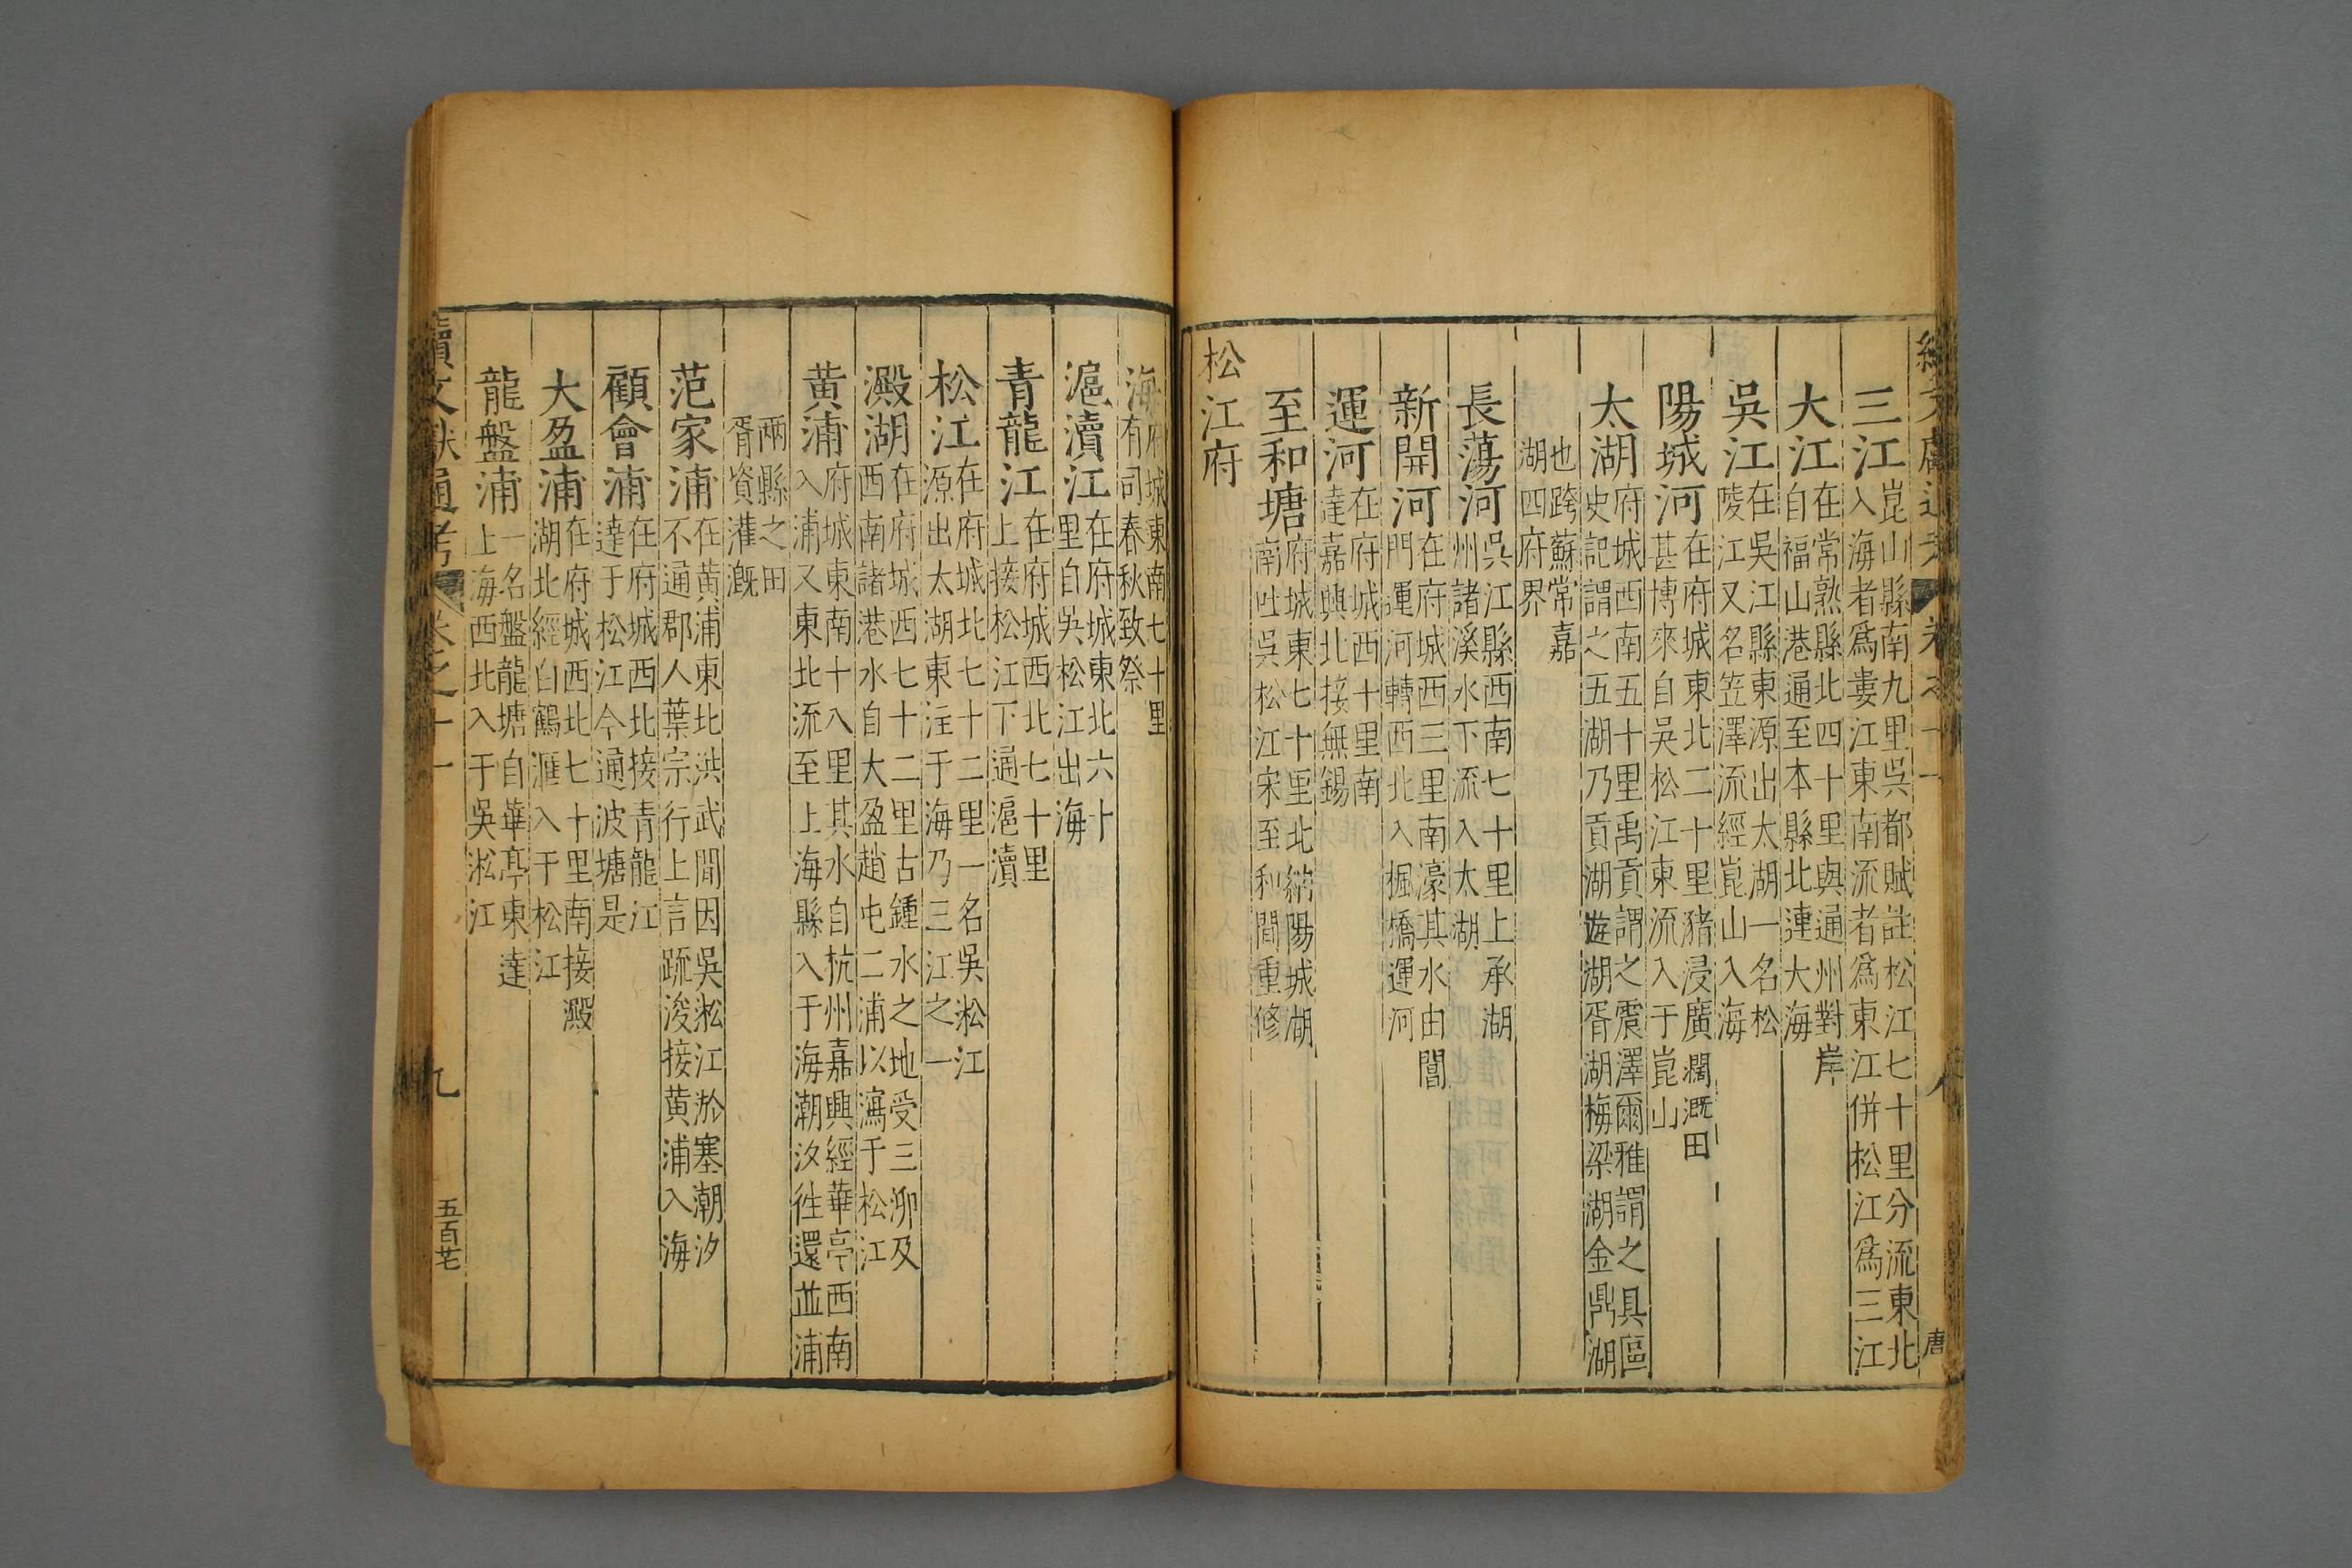 三江崑山縣南九里吳都賦註松江七十里分流東北
入海者爲婁江東南流者爲東江併松江爲三江
大江在常熟縣北四十里與通州對岸
自福山港通至本縣北連大海
吳江在吳江縣東源出太湖一名松
陵江又名笠澤流經崑山入海
陽城河在府城東北二十里豬浸廣濶溉田
甚博來自吳松江東流入于崑山
太湖府城西南五十里禹貢謂之震澤爾雅謂之具區
史記謂之五湖乃貢湖遊湖胥湖梅梁湖金鼎湖
也跨蘇常嘉
湖四府界
長蕩河吳江縣西南七十里上承湖
州諸溪水下流入太湖
新開河在府城西三里南濠其水由閶
門運河轉西北入楓橋運河
運河在府城西十里南
達嘉興北接無錫
至和塘府城東七十里北納陽城湖
南吐吳松江宋至和間重修
松江府
海府城東南七十里
有司春秋致祭
滬瀆江在府城東北六十
里自吳松江出海
青龍江在府城西北七十里
上接松江下通滬瀆
松江在府城北七十二里一名吳淞江
源出太湖東注于海乃三江之一
澱湖在府城西七十二里古鍾水之地受三泖及
西南諸港水自大盈趙屯二浦以瀉于松江
黄浦府城東南十八里其水自杭州嘉興經華亭西南
入浦又東北流至上海縣入于海潮汐徃還並浦
兩縣之田
胥資灌溉
范家浦在黄浦東北洪武間因吳淞江於塞潮汐
不通郡人葉宗行上言疏浚接黄浦入海
顧會浦在府城西北接青龍江
達于松江今通波塘是
大盈浦在府城西北七十里南接澱
湖北經白鶴滙入于松江
龍盤浦一名盤龍塘自華亭東達
上海西北入于吳淞江
續文獻通考 卷之十一 九 五百七